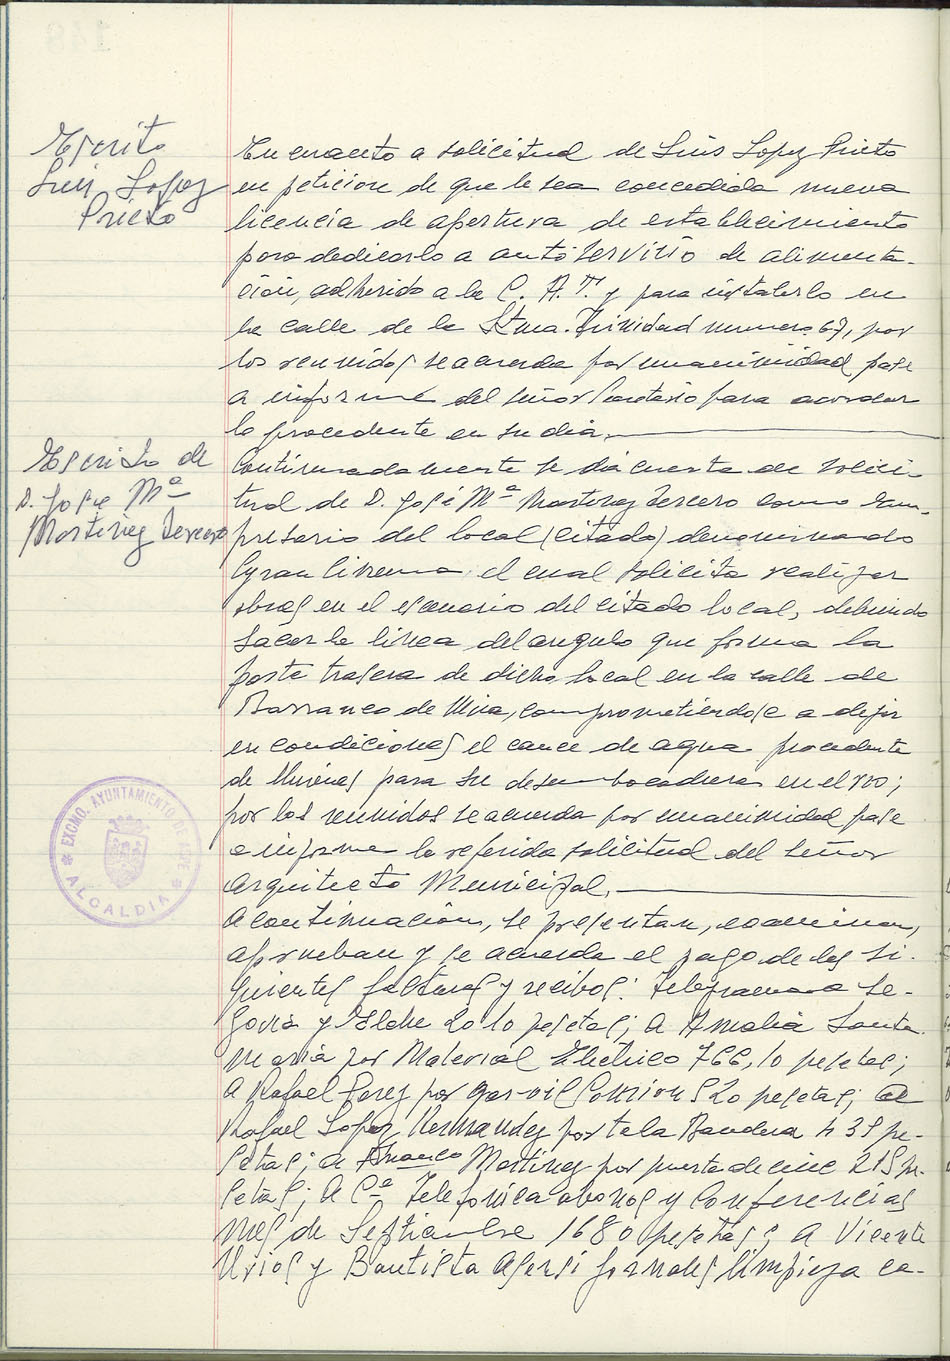 Escrito
Luis Lopez
Prieto
En cuanto a solicitud de Luis Lopez Prieto
en peticion de que le sea concedida nueva
licencia de apertura de establecimiento
para dedicarlo a autoservicio de alimenta-
ción, adherido a la C. A. T. y para instalarlo en
la calle de la Stma. Trinidad numero 67, por
los reunidos se acuerda por unanimidad pase
a informe del señor Sanitario para acordar
lo procedente en su dia.
Escrito de
D. José Mª
Martinez Tercero
Continuadamente se dá cuenta de solici-
tud de D. José Mª Martinez Tercero como Em-
presario del local (citado) denominado
Gran Cinema, el cual solicita realizar
obras en el escenario del citado local, debiendo
sacar la linea del angulo que forma la
parte trasera de dicho local en la calle de
Barranco de Mira, comprometiendose a dejar
en condiciones el cauce de agua procedente
de lluvias para su desembocadura en el rio;
por los reunidos se acuerda por unanimidad pase
a informe la referida solicitud del señor
Arquitecto Municipal.
EXCMO. AYUNTAMIENTO DE ASPE
ALCALDIA
A continuación, se presentan, examinan,
aprueban y se acuerda el pago de las si-
guientes facturas y recibos: Telegrama Se-
govia y Elche 20'10 pesetas; A Amalia Santa
maria por Material Electrico 766,10 pesetas;
A Rafael Perez por gas-oil Camion 520 pesetas; a
Rafael Lopez Hernandez por tela Bandera 435 pe-
setas; a Franco Martinez por puerta de cine 215 pe-
setas; A Cª Telefonica abonos y Conferencias
mes de Septiembre 1680 pesetas; a Vicente
Urios y Bautista Asensi jornales limpieza ca-